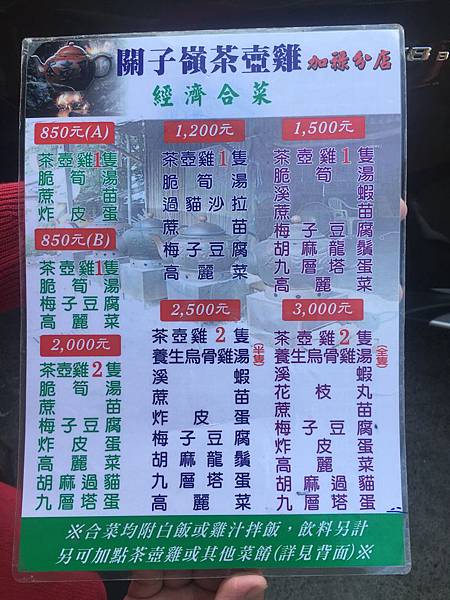 關子嶺茶壺雞 加祿分店
經濟合菜
850元(A)
茶壺雞1隻
脆筍湯
蔗苗
炸皮蛋
850元(B)
茶壺雞1隻
脆筍湯
梅子豆腐
高麗菜
1,200元
茶壺雞1隻
脆筍湯
過貓沙拉
蔗苗
梅子豆腐
高麗菜
1,500元
茶壺雞1隻
脆筍湯
溪蝦
蔗苗
梅子豆腐
胡麻龍鬚
九層塔蛋
高麗菜
2,000元
茶壺雞2隻
脆筍湯
蔗苗
梅子豆腐
炸皮蛋
高麗菜
胡麻過貓
九層塔蛋
2,500元
茶壺雞2隻
養生烏骨雞湯(半隻)
溪蝦
蔗苗
炸皮蛋
梅子豆腐
胡麻龍鬚
九層塔蛋
高麗菜
3,000元
茶壺雞2隻
養生烏骨雞湯(全隻)
溪蝦
花枝丸
蔗苗
梅子豆腐
炸皮蛋
高麗菜
胡麻過貓
九層塔蛋
※合菜均附白飯或雞汁拌飯,飲料另計
另可加點茶壺雞或其他菜餚(詳見背面)※